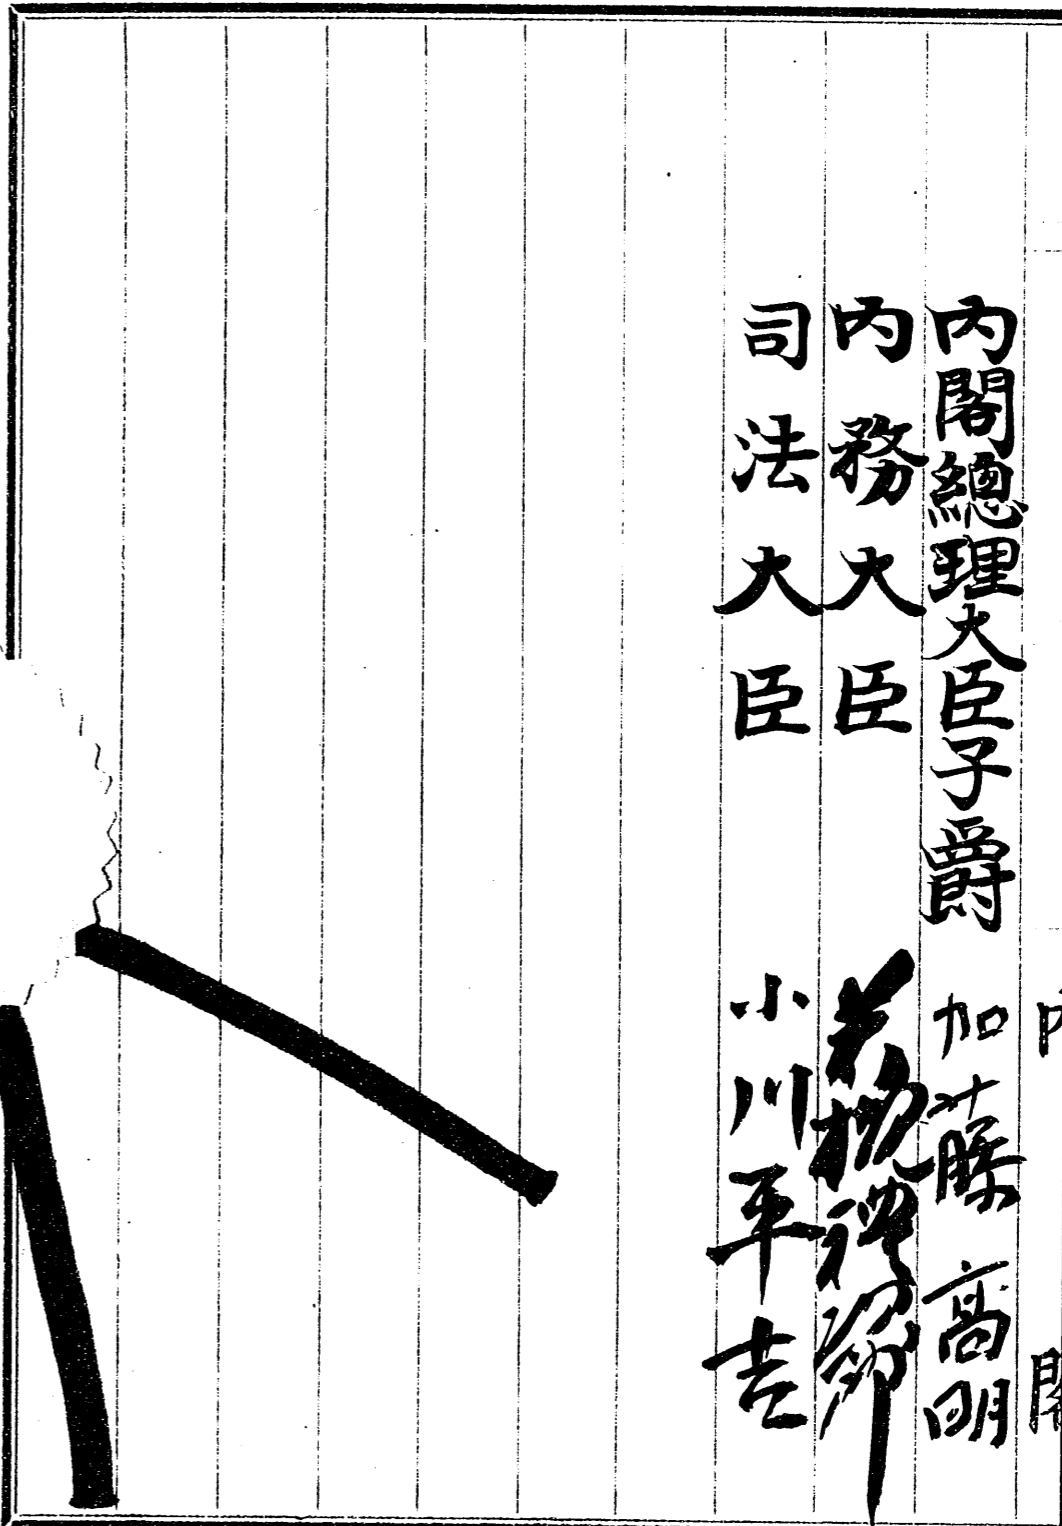 內閣總理大臣子爵 加藤高明
內務大臣 若槻禮次郎
司法大臣 小川平吉